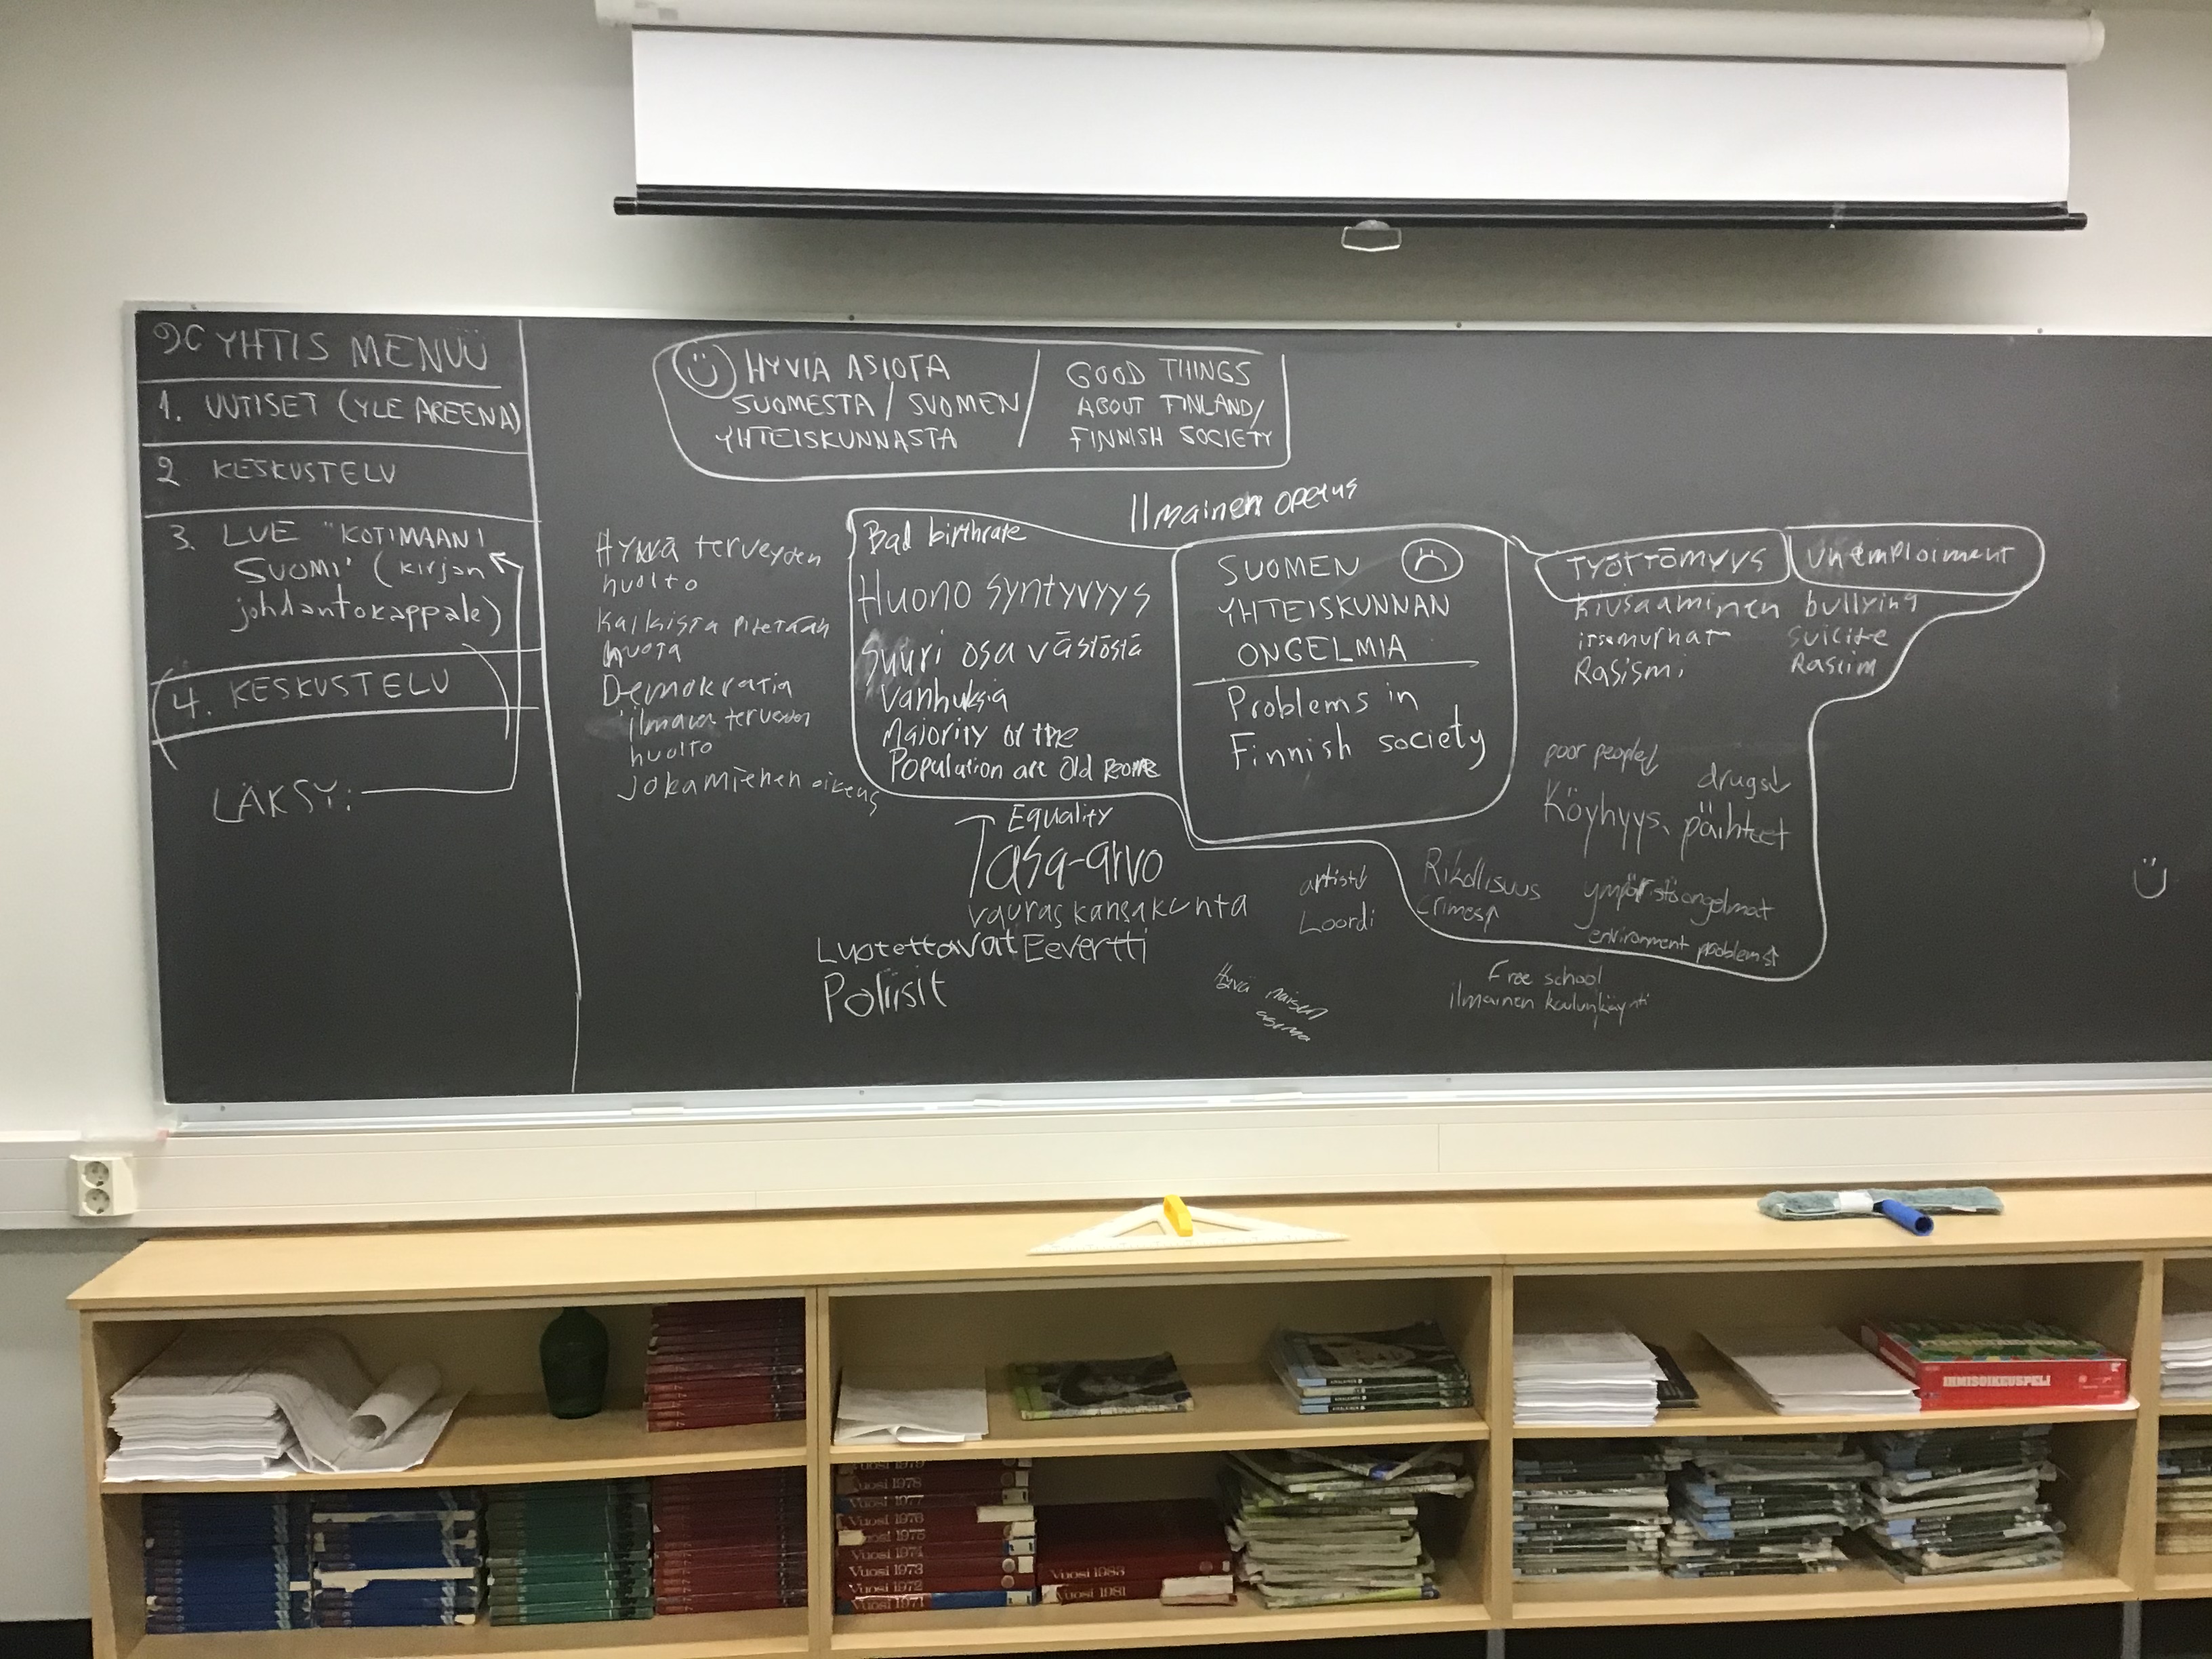 9C YHTIS MENUÜ
1. UUTISET (YLE AREENA)
2 KESKUSTELU
3. LUE "KOTIMAANI
SUOMI" (kirjan
johdantokappale)
4. KESKUSTELU
LÄKSY:
HYVIÄ ASIOTA
SUOMESTA / SUOMEN
YHTEISKUNNASTA
GOOD THINGS
ABOUT FINLAND/
FINNISH SOCIETY
Ilmainen opetus
Hyvä terveyden
huolto
Kaikista pitetään
huota
Demokratia
ilmanen terveden
huolto
Jokamiehen oikeus
Bad birthrate
Huono syntyvyys
Suuri osa västöstä
vanhuksia
Majority of the
Population are Old People
SUOMEN
YHTEISKUNNAN
ONGELMIA
Problems in
Finnish society
TYÖTTÖMYYS
unemploiment
kiusaaminen bullying
itsemurhat suicite
Rasismi Rasiim
poor people↓
drugs↓
Köyhyys, päihteet
Rikollisuus
crimes↑
ympäristöongelmat
environment problems↑
Equality
Tasa-arvo
vauras kansakunta
Luotettavat Eevertti
Poliisit
artist↓
Loordi
Hyvä naisen
asema
Free school
ilmainen koulunkäynti
IHMISOIKEUSPELI
Vuosi 1979
Vuosi 1978
Vuosi 1977
Vuosi 1976
Vuosi 1975
Vuosi 1974
Vuosi 1973
Vuosi 1972
Vuosi 1971
Vuosi 1983
Vuosi 1981